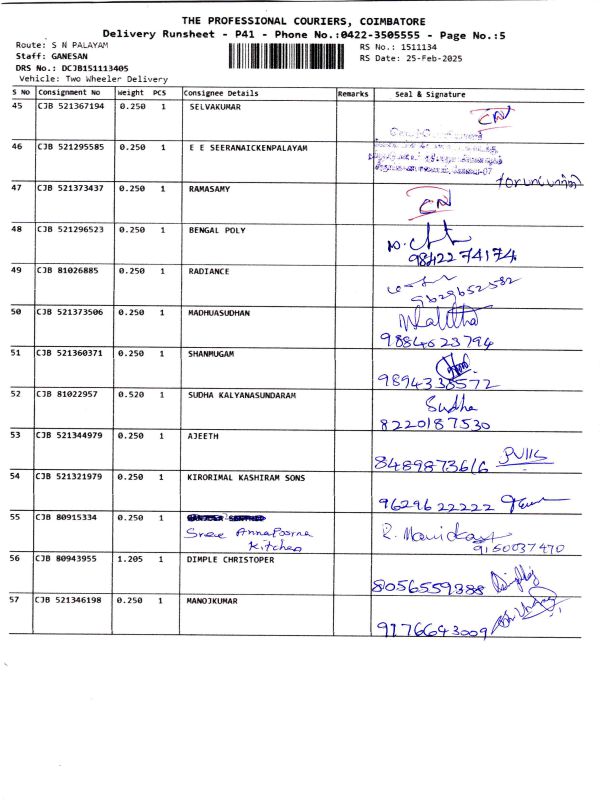 THE PROFESSIONAL COURIERS, COIMBATORE
Delivery Runsheet - P41 - Phone No.:0422-3505555 - Page No.:5
Route: S N PALAYAM RS No.: 1511134
Staff: GANESAN RS Date: 25-Feb-2025
DRS No.: DCJB151113405
Vehicle: Two Wheeler Delivery
S No Consignment No Weight PCS Consignee Details Remarks Seal & Signature
45 CJB 521367194 0.250 1 SELVAKUMAR
46 CJB 521295585 0.250 1 E E SEERANAICKENPALAYAM
47 CJB 521373437 0.250 1 RAMASAMY
48 CJB 521296523 0.250 1 BENGAL POLY
9842274174
49 CJB 81026885 0.250 1 RADIANCE
9629652582
50 CJB 521373506 0.250 1 MADHUASUDHAN
9884623794
51 CJB 521360371 0.250 1 SHANMUGAM
9894338572
52 CJB 81022957 0.520 1 SUDHA KALYANASUNDARAM Sudha
8220187530
53 CJB 521344979 0.250 1 AJEETH
8489873616
54 CJB 521321979 0.250 1 KIRORIMAL KASHIRAM SONS
9629622222
55 CJB 80915334 0.250 1
Sree Annapoorna
Kitchen
9150037470
56 CJB 80943955 1.205 1 DIMPLE CHRISTOPER
8056559388
57 CJB 521346198 0.250 1 MANOJKUMAR
9176643009